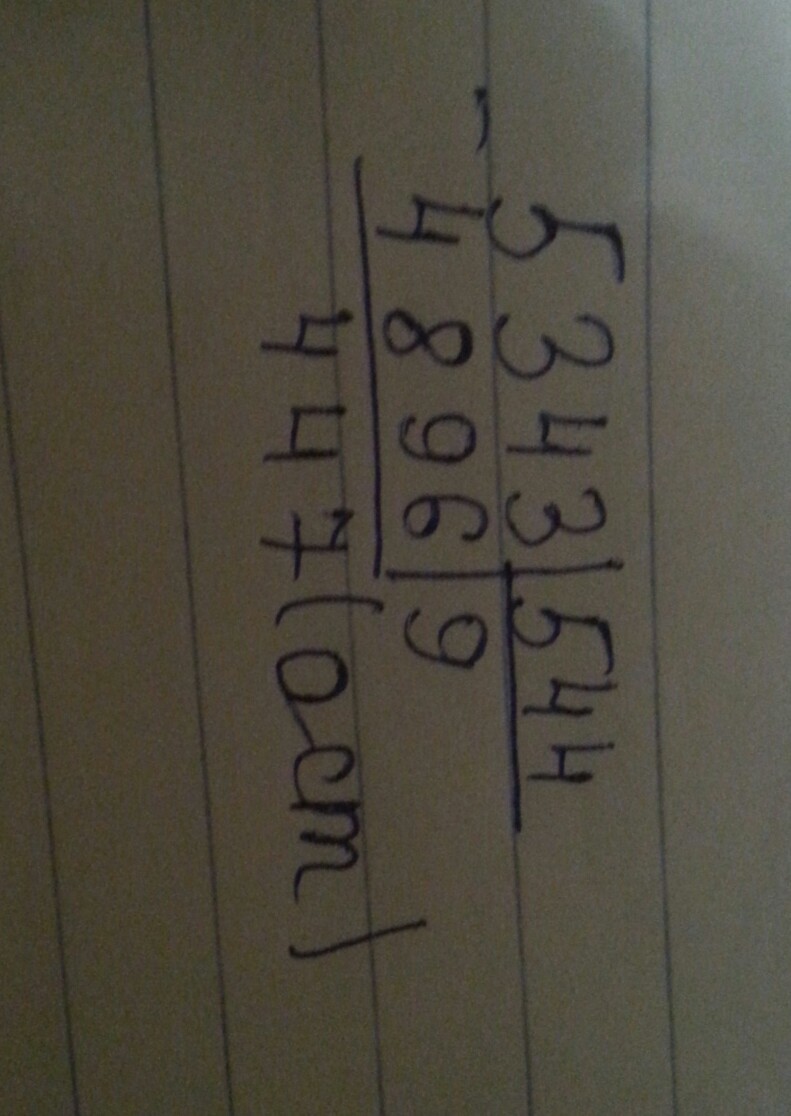 5343|544
-4896|9
447(ост)